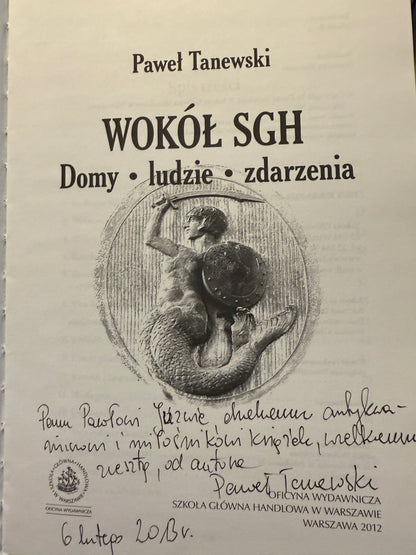 Paweł Tanewski
WOKÓŁ SGH
Domy • ludzie • zdarzenia
Panu Pawłowi Jóźwie, dzielnemu antykwa-
riuszowi i miłośnikowi książek, wielkiemu
zresztą, od autora
Paweł Tanewski
OFICYNA WYDAWNICZA
SZKOŁA GŁÓWNA HANDLOWA W WARSZAWIE
WARSZAWA 2012
SZKOŁA GŁÓWNA HANDLOWA
WARSZAWIE
OFICYNA WYDAWNICZA
6 lutego 2013 r.